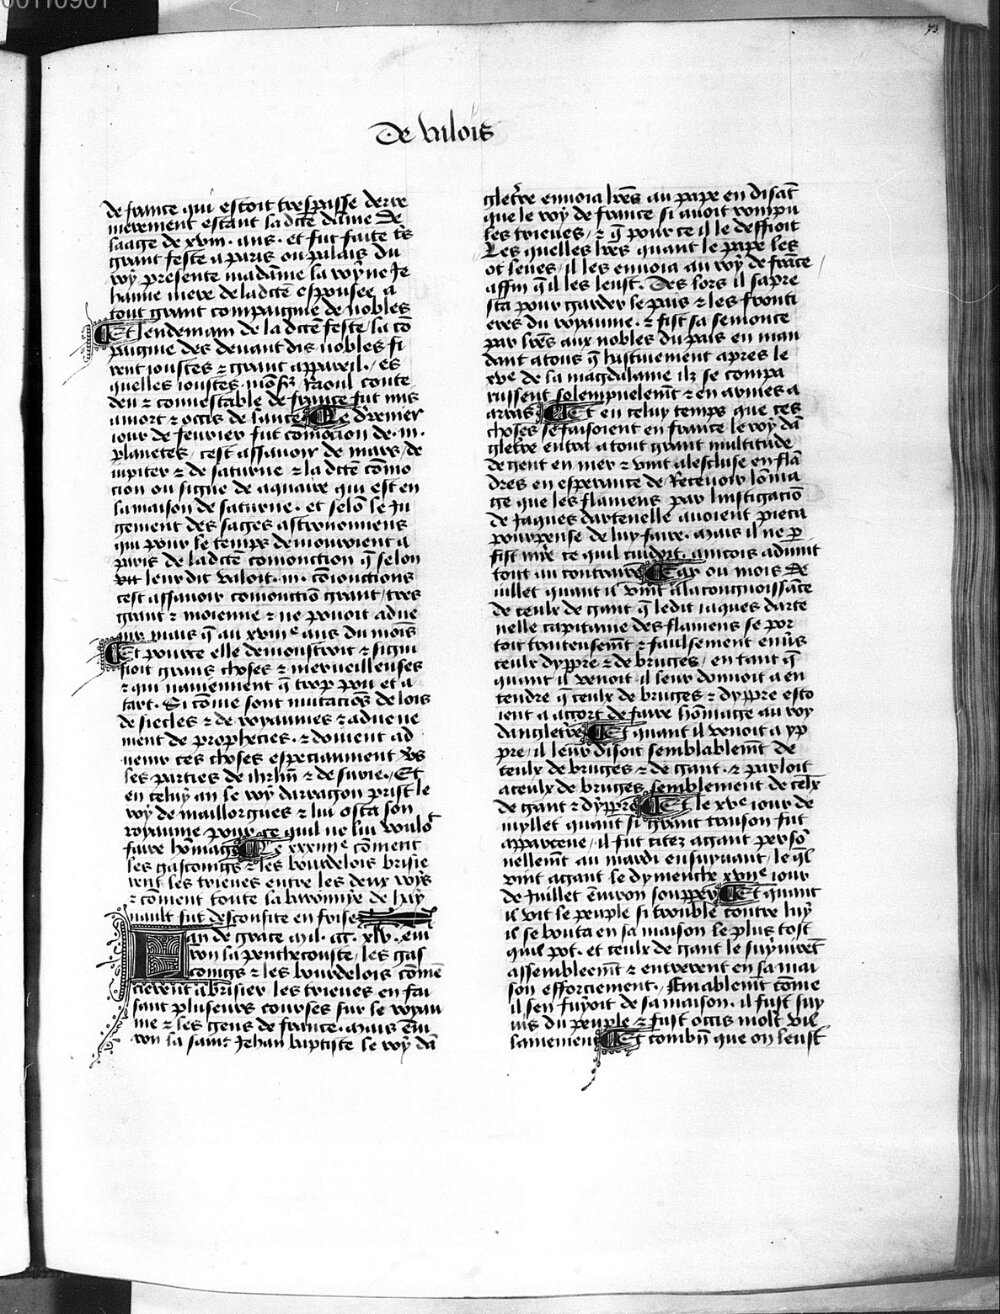 00110901
73
De valois
de france qui estoit trespasse derre
nierement estant sa dcte dame de
laage de xviii. ans. et fut faite tres
grant feste a paris ou palais du
roy presente madame la royne Je
hanne mere de la dcte espousee a
tout grant compaignie de nobles
Et lendemain de la dcte feste la co
paignie des devant dis nobles fi
rent ioustes a grant appareil. es
quelles ioustes Raoul conte
deu & connestable de france fut mis
a mort & occis de lance Le derrenier
iour de fevrier fut coniocion de .iii.
planetes, cest assavoir de mars, de
iupiter & de saturne & la dcte conio
cion ou signe de aquaire qui est en
la maison de saturne. et selo le Ju
gement des sages astronomiens
qui pour le temps demouroient a
paris de la dcte conionction q selon
leur dit valoit .iii. coionctions
cest assavoir conionctio grant, tres
grant & moienne & ne povoit adve
nir mais q au xviiie ans du mois
Et pource elle demonstroit & signi
fioit grans choses & merveilleuses
& qui naviennent q trop pou et a
tart. Si come sont mutacios de lois
de siecles & de royaumes & advene
ment de prophetes. & doivent ad
venir ces choses especiaument vs
les parties de ihrlm & de surie. Et
en celuy an le roy darragon prist le
roy de maillorgues & lui osta son
royaume pour ce quil ne lui vouloit
faire homage Le xxxiiiie coment
les gascoings & les bourdelois brisie
rent les trieves entre les deux roys
& coment toute la baronnie de hay
nault fut desconfite en frise
Lan de grace mil. ccc. xlv. envi
ron la penthecouste, les gas
coings & les bourdelois come
cierent a brisier les trieves en fai
sant pluseurs courses sur le royau
me & les gens de france. mais envi
ron la saint Jehan baptiste le roy da
gletre envoia lres au pape en disat
que le roy de france si avoit rompu
les trieves, & q pour ce il le deffioit
Les quelles lres quant le pape les
ot leues, il les envoia au roy de frace
affin q il les leust. Des lors il sapre
sta pour garder le pais & les fronti
eres du royaume. & fist sa semonce
par lres aux nobles du pais en man
dant a tous q hastivement apres le
xve de la magdalaine ilz se compa
russent solempnelemt & en armes a
arras Et en celuy temps que ces
choses se faisoient en france le roy da
gletre entra a tout grant multitude
de gent en mer & vint a lescluse en fla
dres en esperance de Recevoir loma
ge que les flamens par linstigacio
de Jaques dartevelle avoient pieca
pourpense de luy faire. mais il ne p
fist mie ce quil cuidoit. ancois advint
tout au contraire Car ou mois de
iuillet quant il vint a la congnoissance
de ceulx de gant q ledit iaques darte
velle capitaine des flamens se por
toit traiteusemt & faulsement envers
ceulx dyppre & de bruges, en tant q
quant il venoit il leur donnoit a en
tendre q ceulx de bruges & dyppre esto
ient a acort de faire homage au roy
dangletre Et quant il venoit a yp
pre, il leur disoit semblablemt de
ceulx de bruges & de gant. & parloit
a ceulx de bruges semblement de celx
de gant & dyppre Et le xve iour de
iuyllet quant si grant traison fut
apparceue, il fut citez a gant person
nellemt au mardi ensuyvant, le ql
vint a gant le dymenche xviie iour
de Juillet environ souppez Et quant
il vit le peuple si trouble contre luy
il se bouta en sa maison le plus tost
quil pot. et ceulx de gant le suyvirent
assembleemt & entrerent en sa mai
son efforciement. Finablemt come
il sen fuyoit de sa maison. il fust suy
vis du peuple & fust occis molt vil
lainement Et combn que on leust